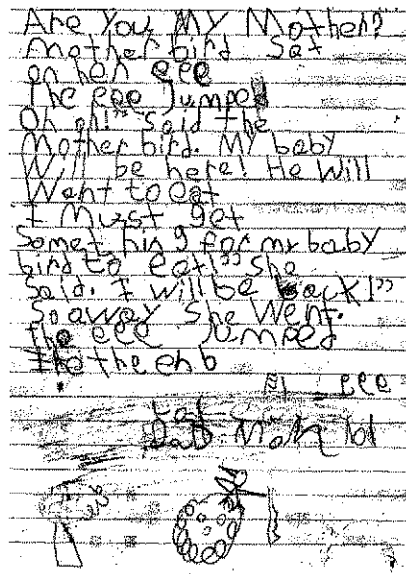 Are You My Mother?
Mother bird sat
on her eee
The eee jumped
Oh oh!" said the
Mother bird. My baby
Will be here! He will
Want to eat
I must get
Something for my baby
bird to eat!" she
said. I will be back!"
So away she went.
The eee jumped
the enb
eee